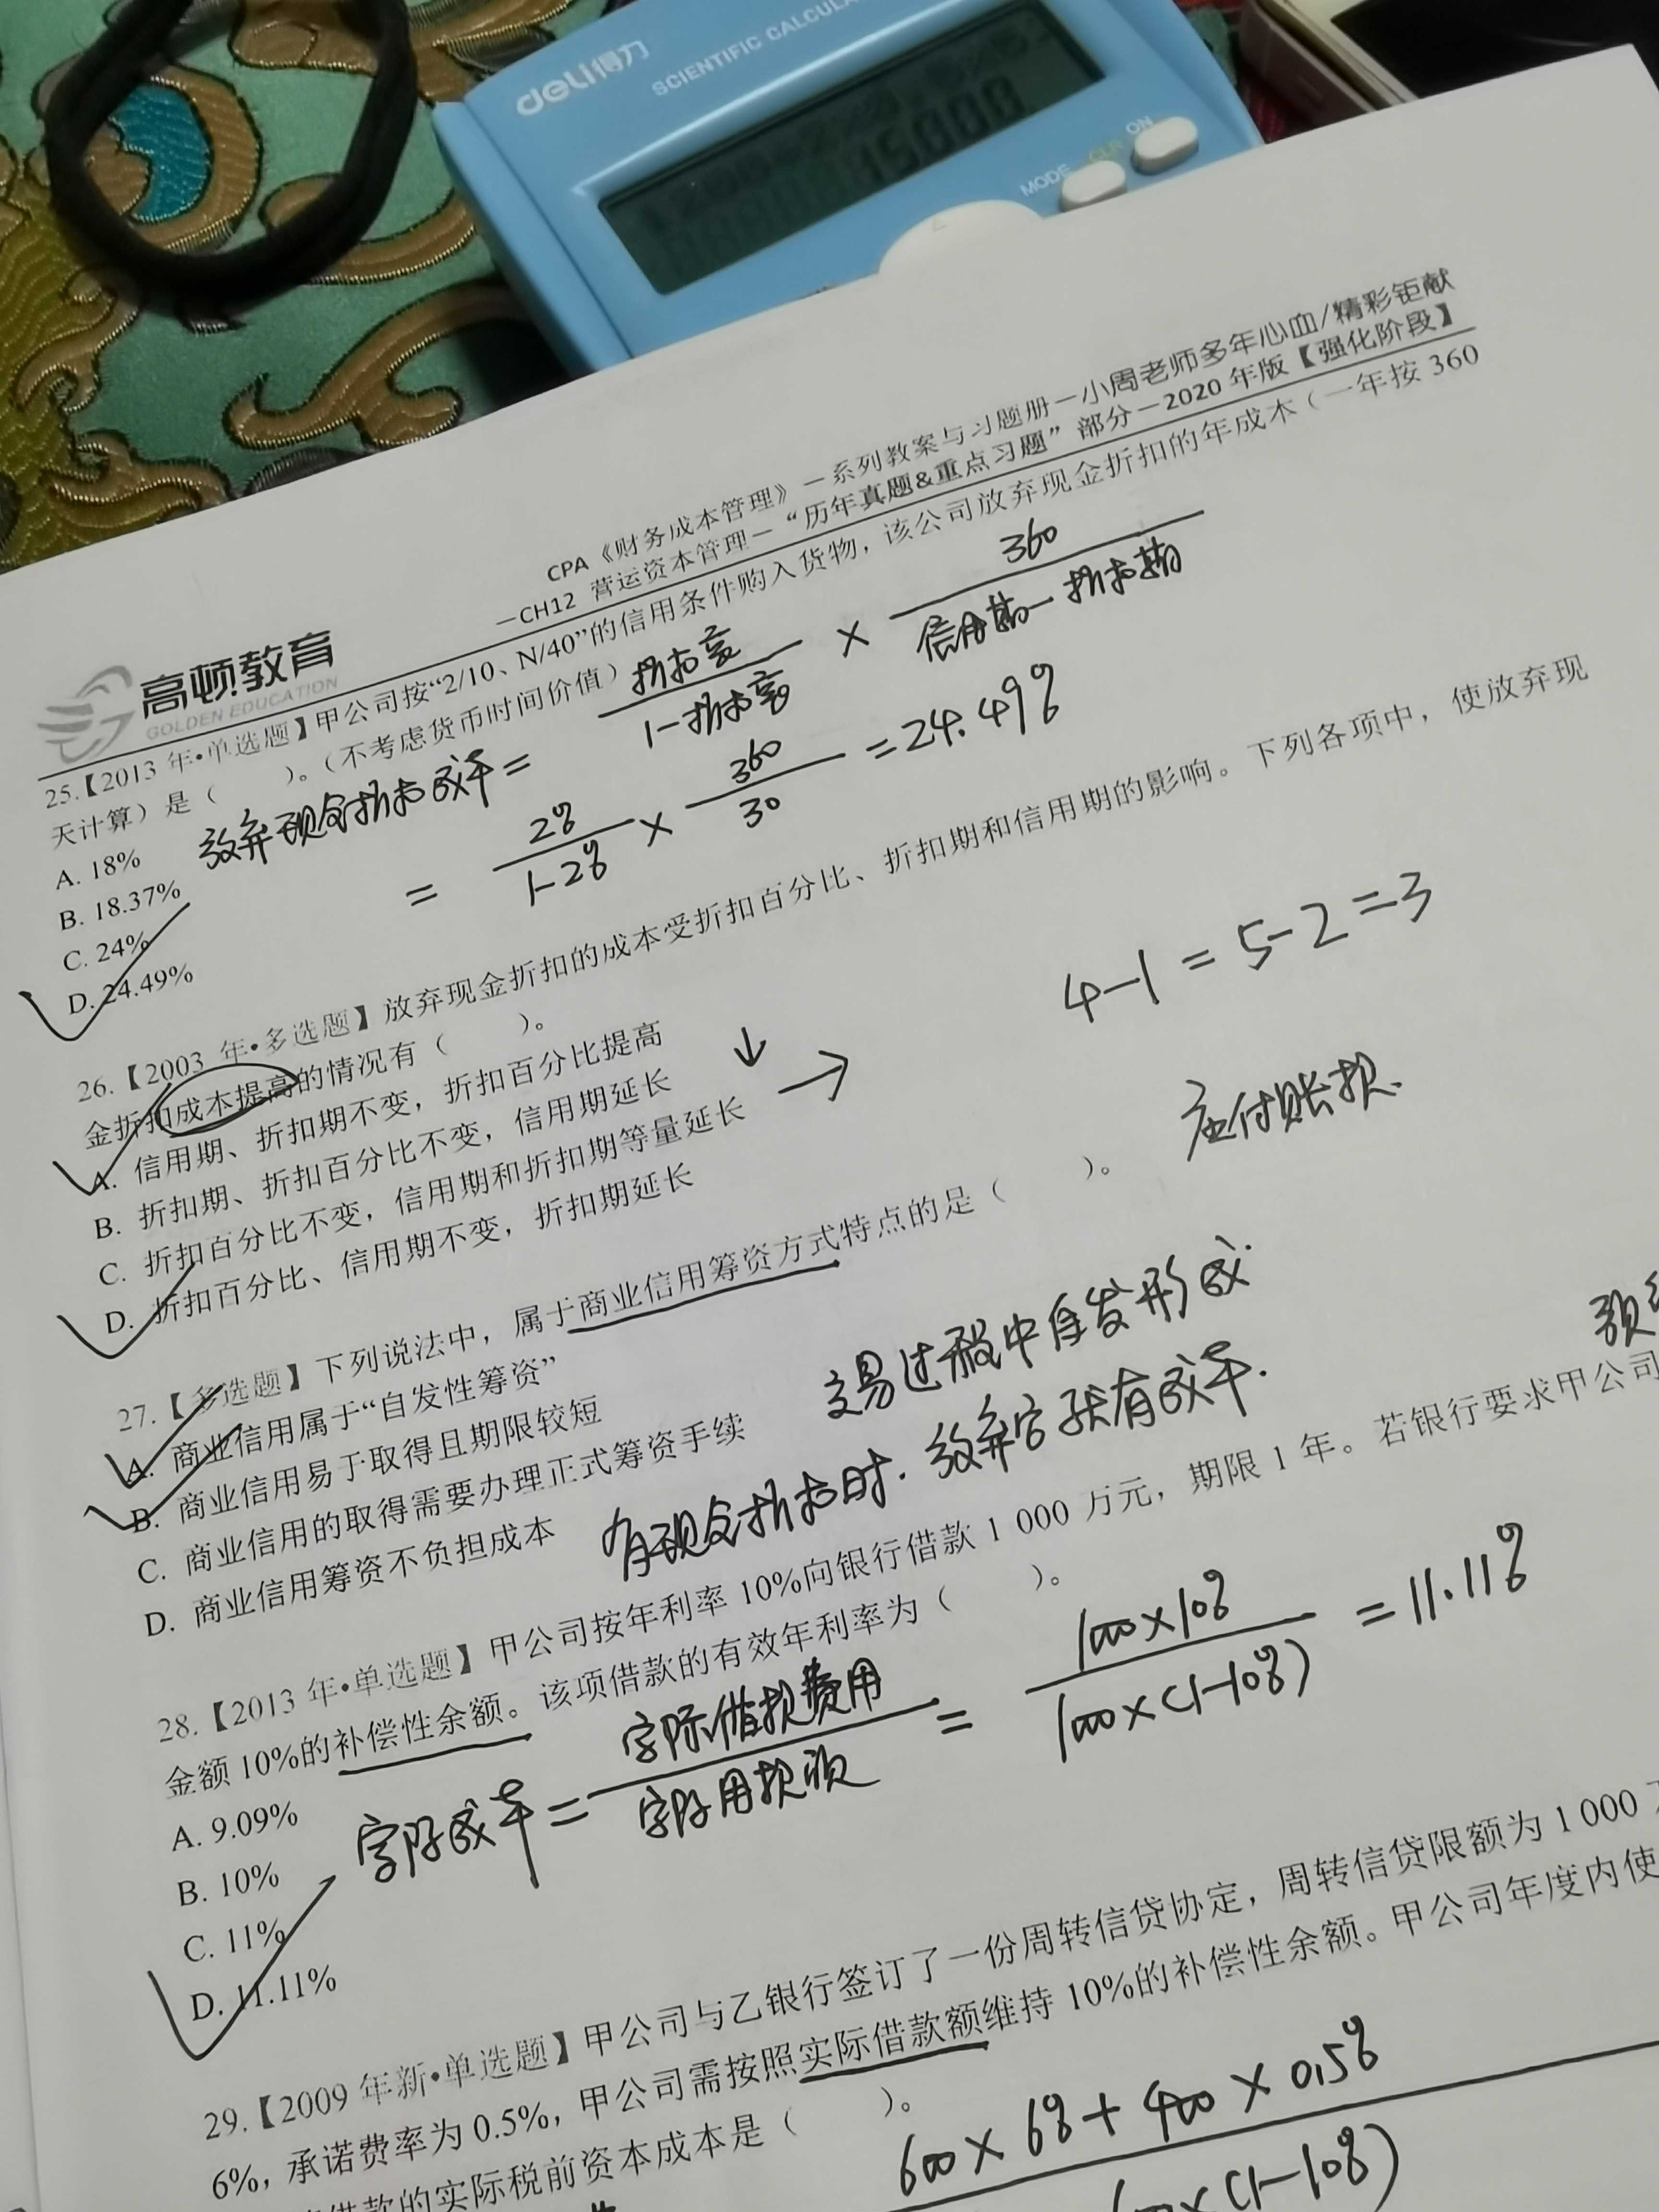 deli得力
SCIENTIFIC CALCULA
15000
MODE
CLR
ON
CPA《财务成本管理》—系列教案与习题册—小周老师多年心血/精彩钜献
—CH12 营运资本管理—“历年真题&重点习题”部分—2020年版【强化阶段】
高顿教育
GOLDEN EDUCATION
25.【2013 年•单选题】甲公司按“2/10、N/40”的信用条件购入货物，该公司放弃现金折扣的年成本（一年按 360
天计算）是（ ）。（不考虑货币时间价值）
放弃现金折扣成本= 折扣率/1-折扣率 × 360/信用期-折扣期
= 2%/1-2% × 360/30 =24.49%
A. 18%
B. 18.37%
C. 24%
D. 24.49%
26.【2003 年•多选题】放弃现金折扣的成本受折扣百分比、折扣期和信用期的影响。下列各项中，使放弃现
金折扣成本提高的情况有（ ）。
A. 信用期、折扣期不变，折扣百分比提高
B. 折扣期、折扣百分比不变，信用期延长 ↓
C. 折扣百分比不变，信用期和折扣期等量延长 →
D. 折扣百分比、信用期不变，折扣期延长
4-1=5-2=3
应付账款.
27.【多选题】下列说法中，属于商业信用筹资方式特点的是（ ）。
A. 商业信用属于“自发性筹资”
交易过程中自发形成.
B. 商业信用易于取得且期限较短
C. 商业信用的取得需要办理正式筹资手续
D. 商业信用筹资不负担成本
有现金折扣时.放弃它就有成本.
28.【2013 年•单选题】甲公司按年利率 10%向银行借款 1 000 万元，期限 1 年。若银行要求甲公司
金额 10%的补偿性余额。该项借款的有效年利率为（ ）。
A. 9.09%
B. 10%
C. 11%
D. 11.11%
实际成本= 实际借款费用/实际用款额 = 1000×10%/1000×(1-10%) =11.11%
29.【2009 年新•单选题】甲公司与乙银行签订了一份周转信贷协定，周转信贷限额为 1 000
6%，承诺费率为 0.5%，甲公司需按照实际借款额维持 10%的补偿性余额。甲公司年度内使
借款的实际税前资本成本是（ ）。
600×6%+400×0.5%
×(1-10%)